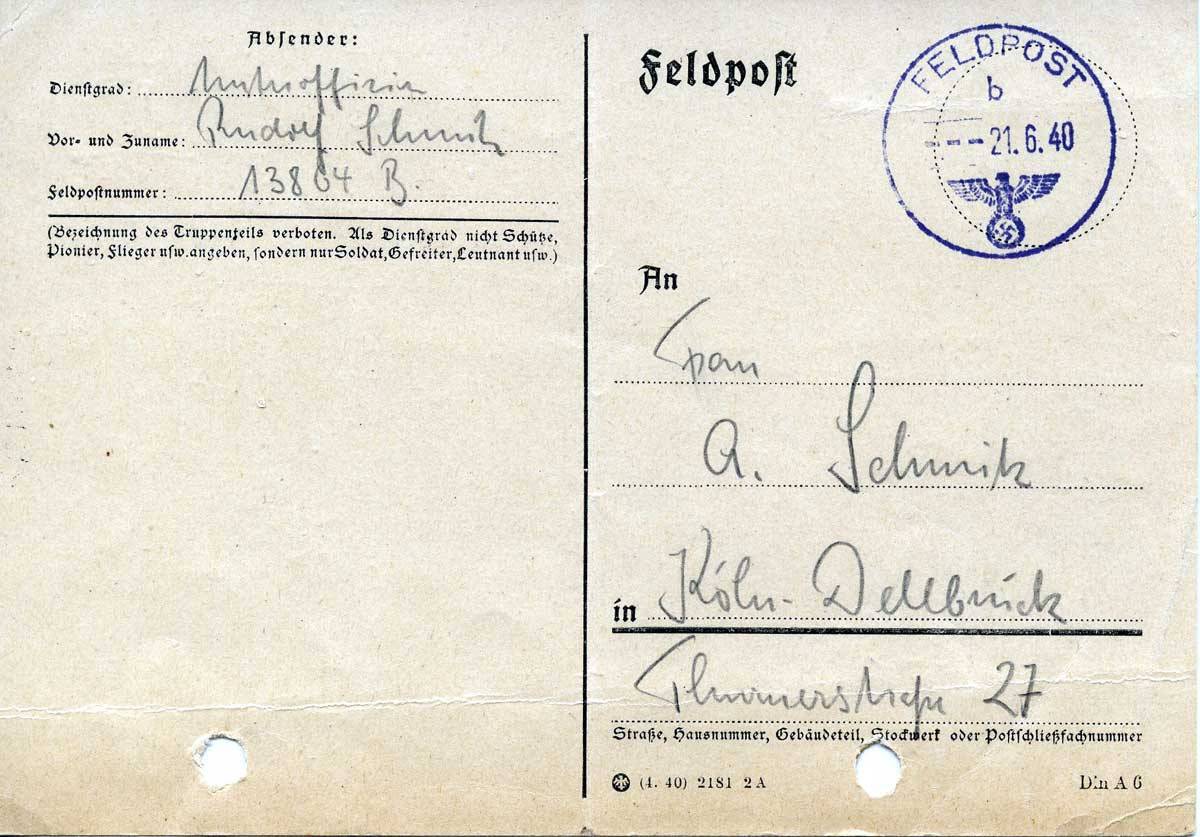 Absender:
Dienstgrad: Unteroffizier
Vor- und Zuname: Rudolf Schmitz
Feldpostnummer: 13864 B.
(Bezeichnung des Truppenteils verboten. Als Dienstgrad nicht Schütze,
Pionier, Flieger usw. angeben, sondern nur Soldat, Gefreiter, Leutnant usw.)
Feldpost
FELDPOST
b
---21.6.40
An
Frau
A. Schmitz
in Köln-Dellbrück
Thurnerstraße 27
Straße, Hausnummer, Gebäudeteil, Stockwerk oder Postschließfachnummer
(4. 40) 2181 2 A
Din A 6